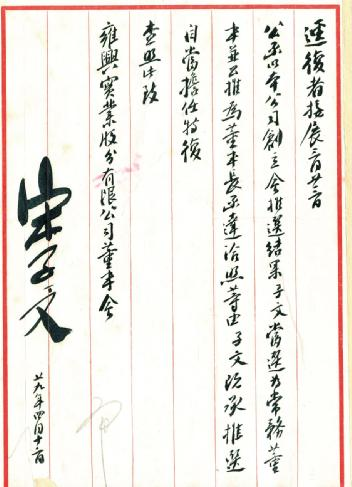 逕復者接展三月廿二日
公函以本公司創立會推選結果子文當選為常務董
事並公推為董事長函達洽照等由子文既承推選
自當擔任特復
查照此致
雍興實業股份有限公司董事會
宋子文
廿九年四月十二日